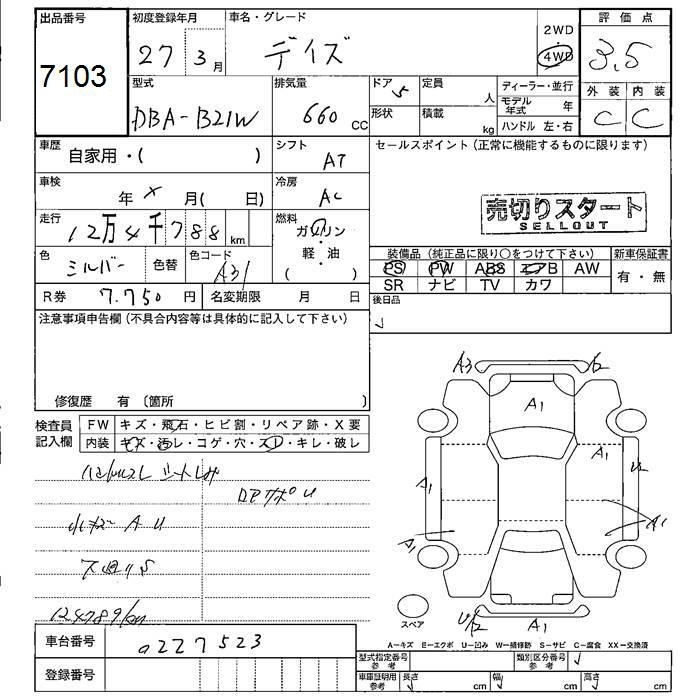 出品番号 初度登録年月 車名・グレード 2WD 評価点
7103 27 3月 デイズ 4WD 3.5
型式 排気量 ドア 定員 ディーラー・並行 外装 内装
DBA-B21W 660 CC 5 人 モデル年式 年 C C
形状 積載 kg ハンドル 左・右
車歴 自家用・( ) シフト AT セールスポイント(正常に機能するものに限ります)
車検 年 × 月( 日) 冷房 AC
売切りスタート
SELLOUT
走行 12万4千788km 燃料 ガソリン・軽・油 ( )
装備品(純正品に限り○をつけて下さい) 新車保証書
色 シルバー 色替 色コード A31
PS PW ABS エアB AW 有・無
SR ナビ TV カワ
R券 7.750 円 名変期限 月 日
後日品
注意事項申告欄(不具合内容等は具体的に記入して下さい)
修復歴 有 (箇所 )
検査員記入欄 FW キズ・飛石・ヒビ割・リペア跡・X要
内装 キズ・汚レ・コゲ・穴・スレ・キレ・破レ
A3
A1
A1
A1
U
A1
A1
A U
124789km
A1
スペア
A-キズ E-エクボ U-凹み W-補修跡 S-サビ C-腐食 XX-交換済
車台番号 0227523
型式指定番号 参考 類別区分番号 参考
登録番号
車庫証明用 参考 長さ cm 幅 cm 高さ cm